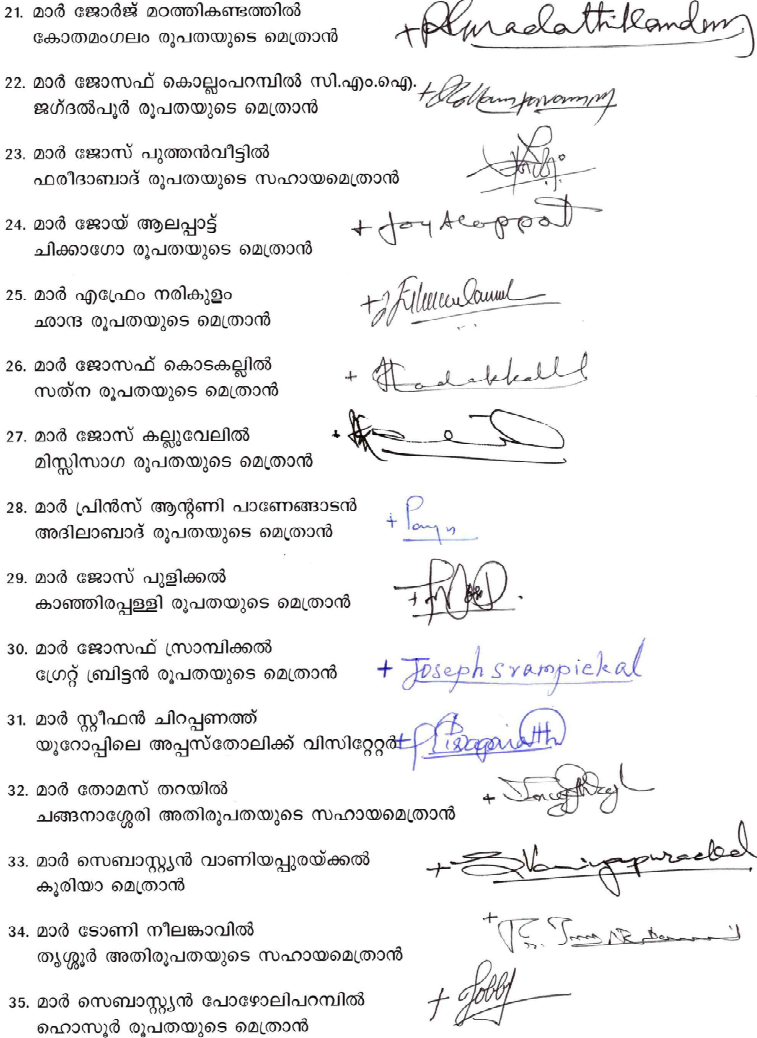 21. മാർ ജോർജ് മഠത്തികണ്ടത്തിൽ
കോതമംഗലം രൂപതയുടെ മെത്രാൻ
22. മാർ ജോസഫ് കൊല്ലംപറമ്പിൽ സി.എം.ഐ.
ജഗ്ദൽപൂർ രൂപതയുടെ മെത്രാൻ
23. മാർ ജോസ് പുത്തൻവീട്ടിൽ
ഫരീദാബാദ് രൂപതയുടെ സഹായമെത്രാൻ
24. മാർ ജോയ് ആലപ്പാട്ട്
ചിക്കാഗോ രൂപതയുടെ മെത്രാൻ
+ Joy Alappat
25. മാർ എഫ്രേം നരികുളം
ഛാന്ദ രൂപതയുടെ മെത്രാൻ
26. മാർ ജോസഫ് കൊടകല്ലിൽ
സത്ന രൂപതയുടെ മെത്രാൻ
27. മാർ ജോസ് കല്ലുവേലിൽ
മിസ്സിസാഗ രൂപതയുടെ മെത്രാൻ
28. മാർ പ്രിൻസ് ആന്റണി പാണേങ്ങാടൻ
അദിലാബാദ് രൂപതയുടെ മെത്രാൻ
29. മാർ ജോസ് പുളിക്കൽ
കാഞ്ഞിരപ്പള്ളി രൂപതയുടെ മെത്രാൻ
30. മാർ ജോസഫ് സ്രാമ്പിക്കൽ
ഗ്രേറ്റ് ബ്രിട്ടൻ രൂപതയുടെ മെത്രാൻ
+ Joseph Srampickal
31. മാർ സ്റ്റീഫൻ ചിറപ്പണത്ത്
യൂറോപ്പിലെ അപ്പസ്തോലിക്ക് വിസിറ്റേറ്റർ
32. മാർ തോമസ് തറയിൽ
ചങ്ങനാശ്ശേരി അതിരൂപതയുടെ സഹായമെത്രാൻ
33. മാർ സെബാസ്റ്റ്യൻ വാണിയപ്പുരയ്ക്കൽ
കൂരിയാ മെത്രാൻ
34. മാർ ടോണി നീലങ്കാവിൽ
തൃശ്ശൂർ അതിരൂപതയുടെ സഹായമെത്രാൻ
35. മാർ സെബാസ്റ്റ്യൻ പോഴോലിപറമ്പിൽ
ഹൊസൂർ രൂപതയുടെ മെത്രാൻ